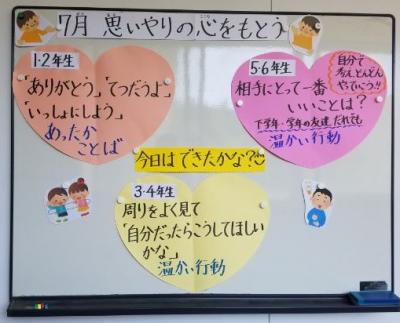 7月 思いやりの心をもとう
1・2年生
「ありがとう」「てつだうよ」
「いっしょにしよう」
あったか
ことば
5・6年生
自分で
考え、どんどん
やっていこう!!
相手にとって一番
いいことは?
下学年・学年の友達 だれでも
温かい行動
今日はできたかな?
3・4年生
周りをよく見て
「自分だったらこうしてほしい
かな」
温かい行動